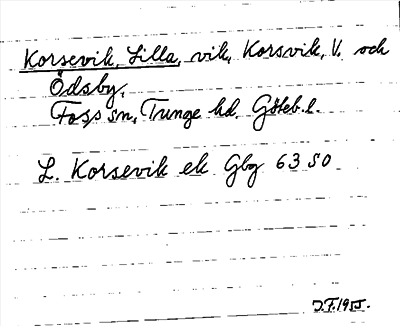 Korsevik, Lilla, vik, Korsvik, V. och
Ödsby,
Foss sn, Tunge hd, Göteb. l.
L. Korsevik ek Gbg 63 SO
J.F. 1955.